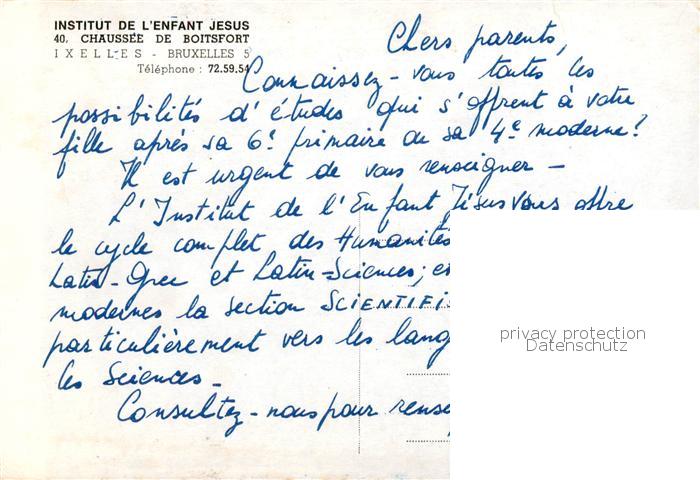 INSTITUT DE L'ENFANT JESUS
40, CHAUSSÉE DE BOITSFORT
IXELLES - BRUXELLES 5
Téléphone : 72.59.54
Chers parents,
Connaissez-vous toutes les
possibilités d'études qui s'offrent à votre
fille après sa 6e primaire ou sa 4e moderne?
Il est urgent de vous renseigner -
L'Institut de l'Enfant Jésus vous offre
le cycle complet des Humanités
Latin-Grec et Latin-Sciences; e
modernes la section SCIENTIFI
particulièrement vers les lang
les Sciences -
Consultez-nous pour rense
privacy protection
Datenschutz